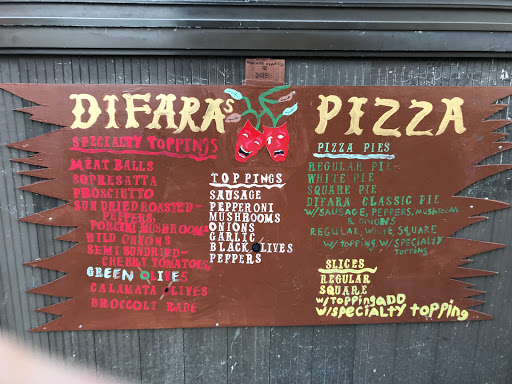 DIFARAS PIZZA
SPECIALTY TOPPINGS
MEAT BALLS
SOPRESATTA
PROSCIUTTO
SUN DRIED ROASTED-
PEPPERS,
PORCINI MUSHROOMS
WILD ONIONS
SEMI SUNDRIED-
CHERRY TOMATOES,
GREEN OLIVES
CALAMATA OLIVES
BROCCOLI RABE
TOPPINGS
SAUSAGE
PEPPERONI
MUSHROOMS
ONIONS
GARLIC
BLACK OLIVES
PEPPERS
PIZZA PIES
REGULAR PIE-
WHITE PIE
SQUARE PIE
DIFARA CLASSIC PIE
W/SAUSAGE, PEPPERS, MUSHROOMS
& ONIONS
REGULAR, WHITE SQUARE
W/TOPPING, W/SPECIALTY
TOPPING
SLICES
REGULAR
SQUARE
W/TOPPING ADD
W/SPECIALTY TOPPING